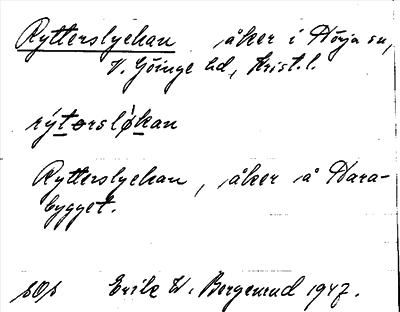 Rytterslyckan, åker i Hörja sn,
V. Göinge hd, Krist. l.
rýtersløkan
Rytterslyckan, åker å Hara-
bygget.
Erik W. Bergenrud 1947.